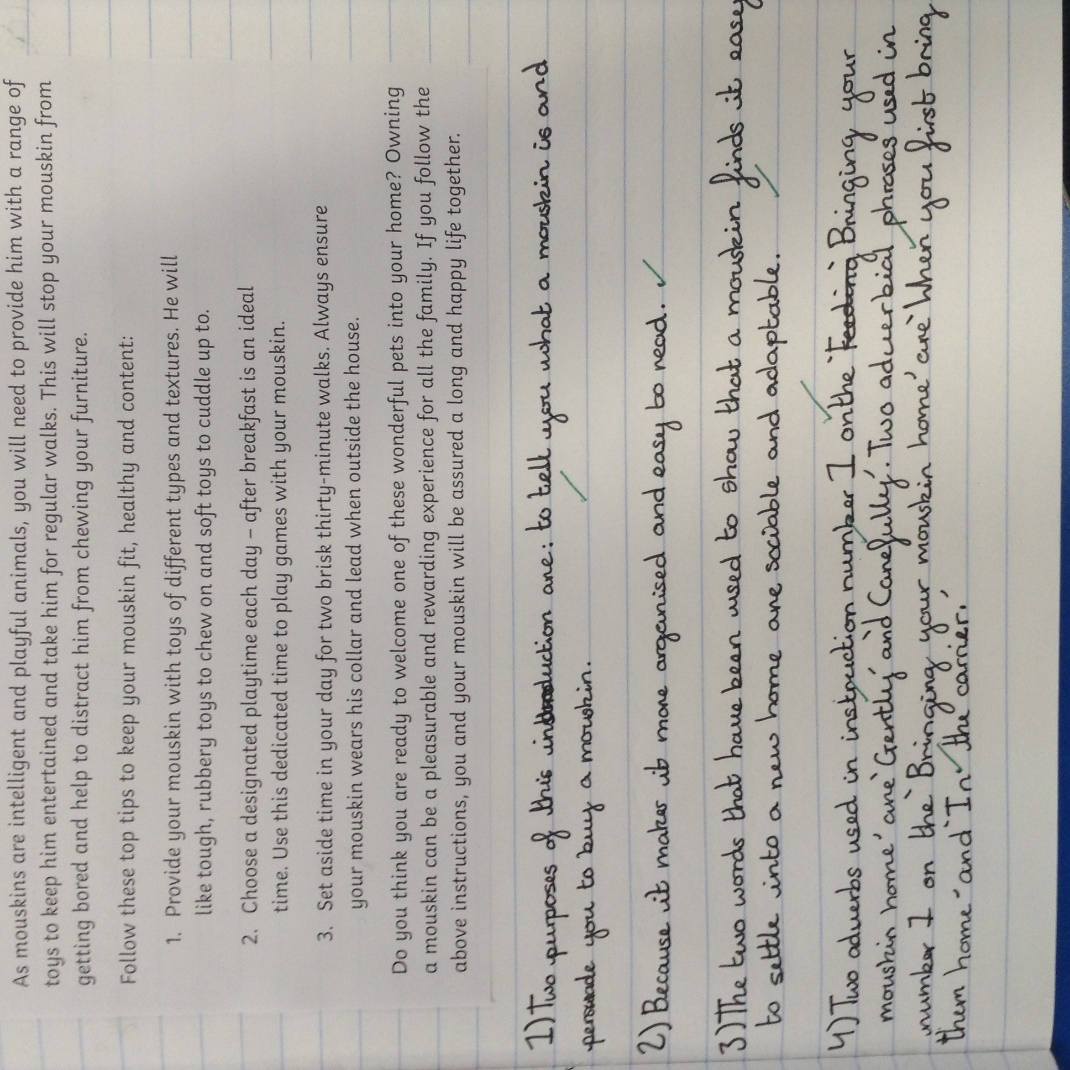 As mouskins are intelligent and playful animals, you will need to provide him with a range of
toys to keep him entertained and take him for regular walks. This will stop your mouskin from
getting bored and help to distract him from chewing your furniture.
Follow these top tips to keep your mouskin fit, healthy and content:
1. Provide your mouskin with toys of different types and textures. He will
like tough, rubbery toys to chew on and soft toys to cuddle up to.
2. Choose a designated playtime each day – after breakfast is an ideal
time. Use this dedicated time to play games with your mouskin.
3. Set aside time in your day for two brisk thirty-minute walks. Always ensure
your mouskin wears his collar and lead when outside the house.
Do you think you are ready to welcome one of these wonderful pets into your home? Owning
a mouskin can be a pleasurable and rewarding experience for all the family. If you follow the
above instructions, you and your mouskin will be assured a long and happy life together.
1) Two purposes of this introduction are: to tell you what a mouskin is and
persuade you to buy a mouskin.
2) Because it makes it more organised and easy to read.
3) The two words that have been used to show that a mouskin finds it easy
to settle into a new home are sociable and adaptable.
4) Two adverbs used in instruction number 1 on the 'Feeding Bringing your
mouskin home' are 'Gently' and 'Carefully'. Two adverbial phrases used in
number 1 on the 'Bringing your mouskin home' are 'When you first bring
them home' and 'In the carrier.'